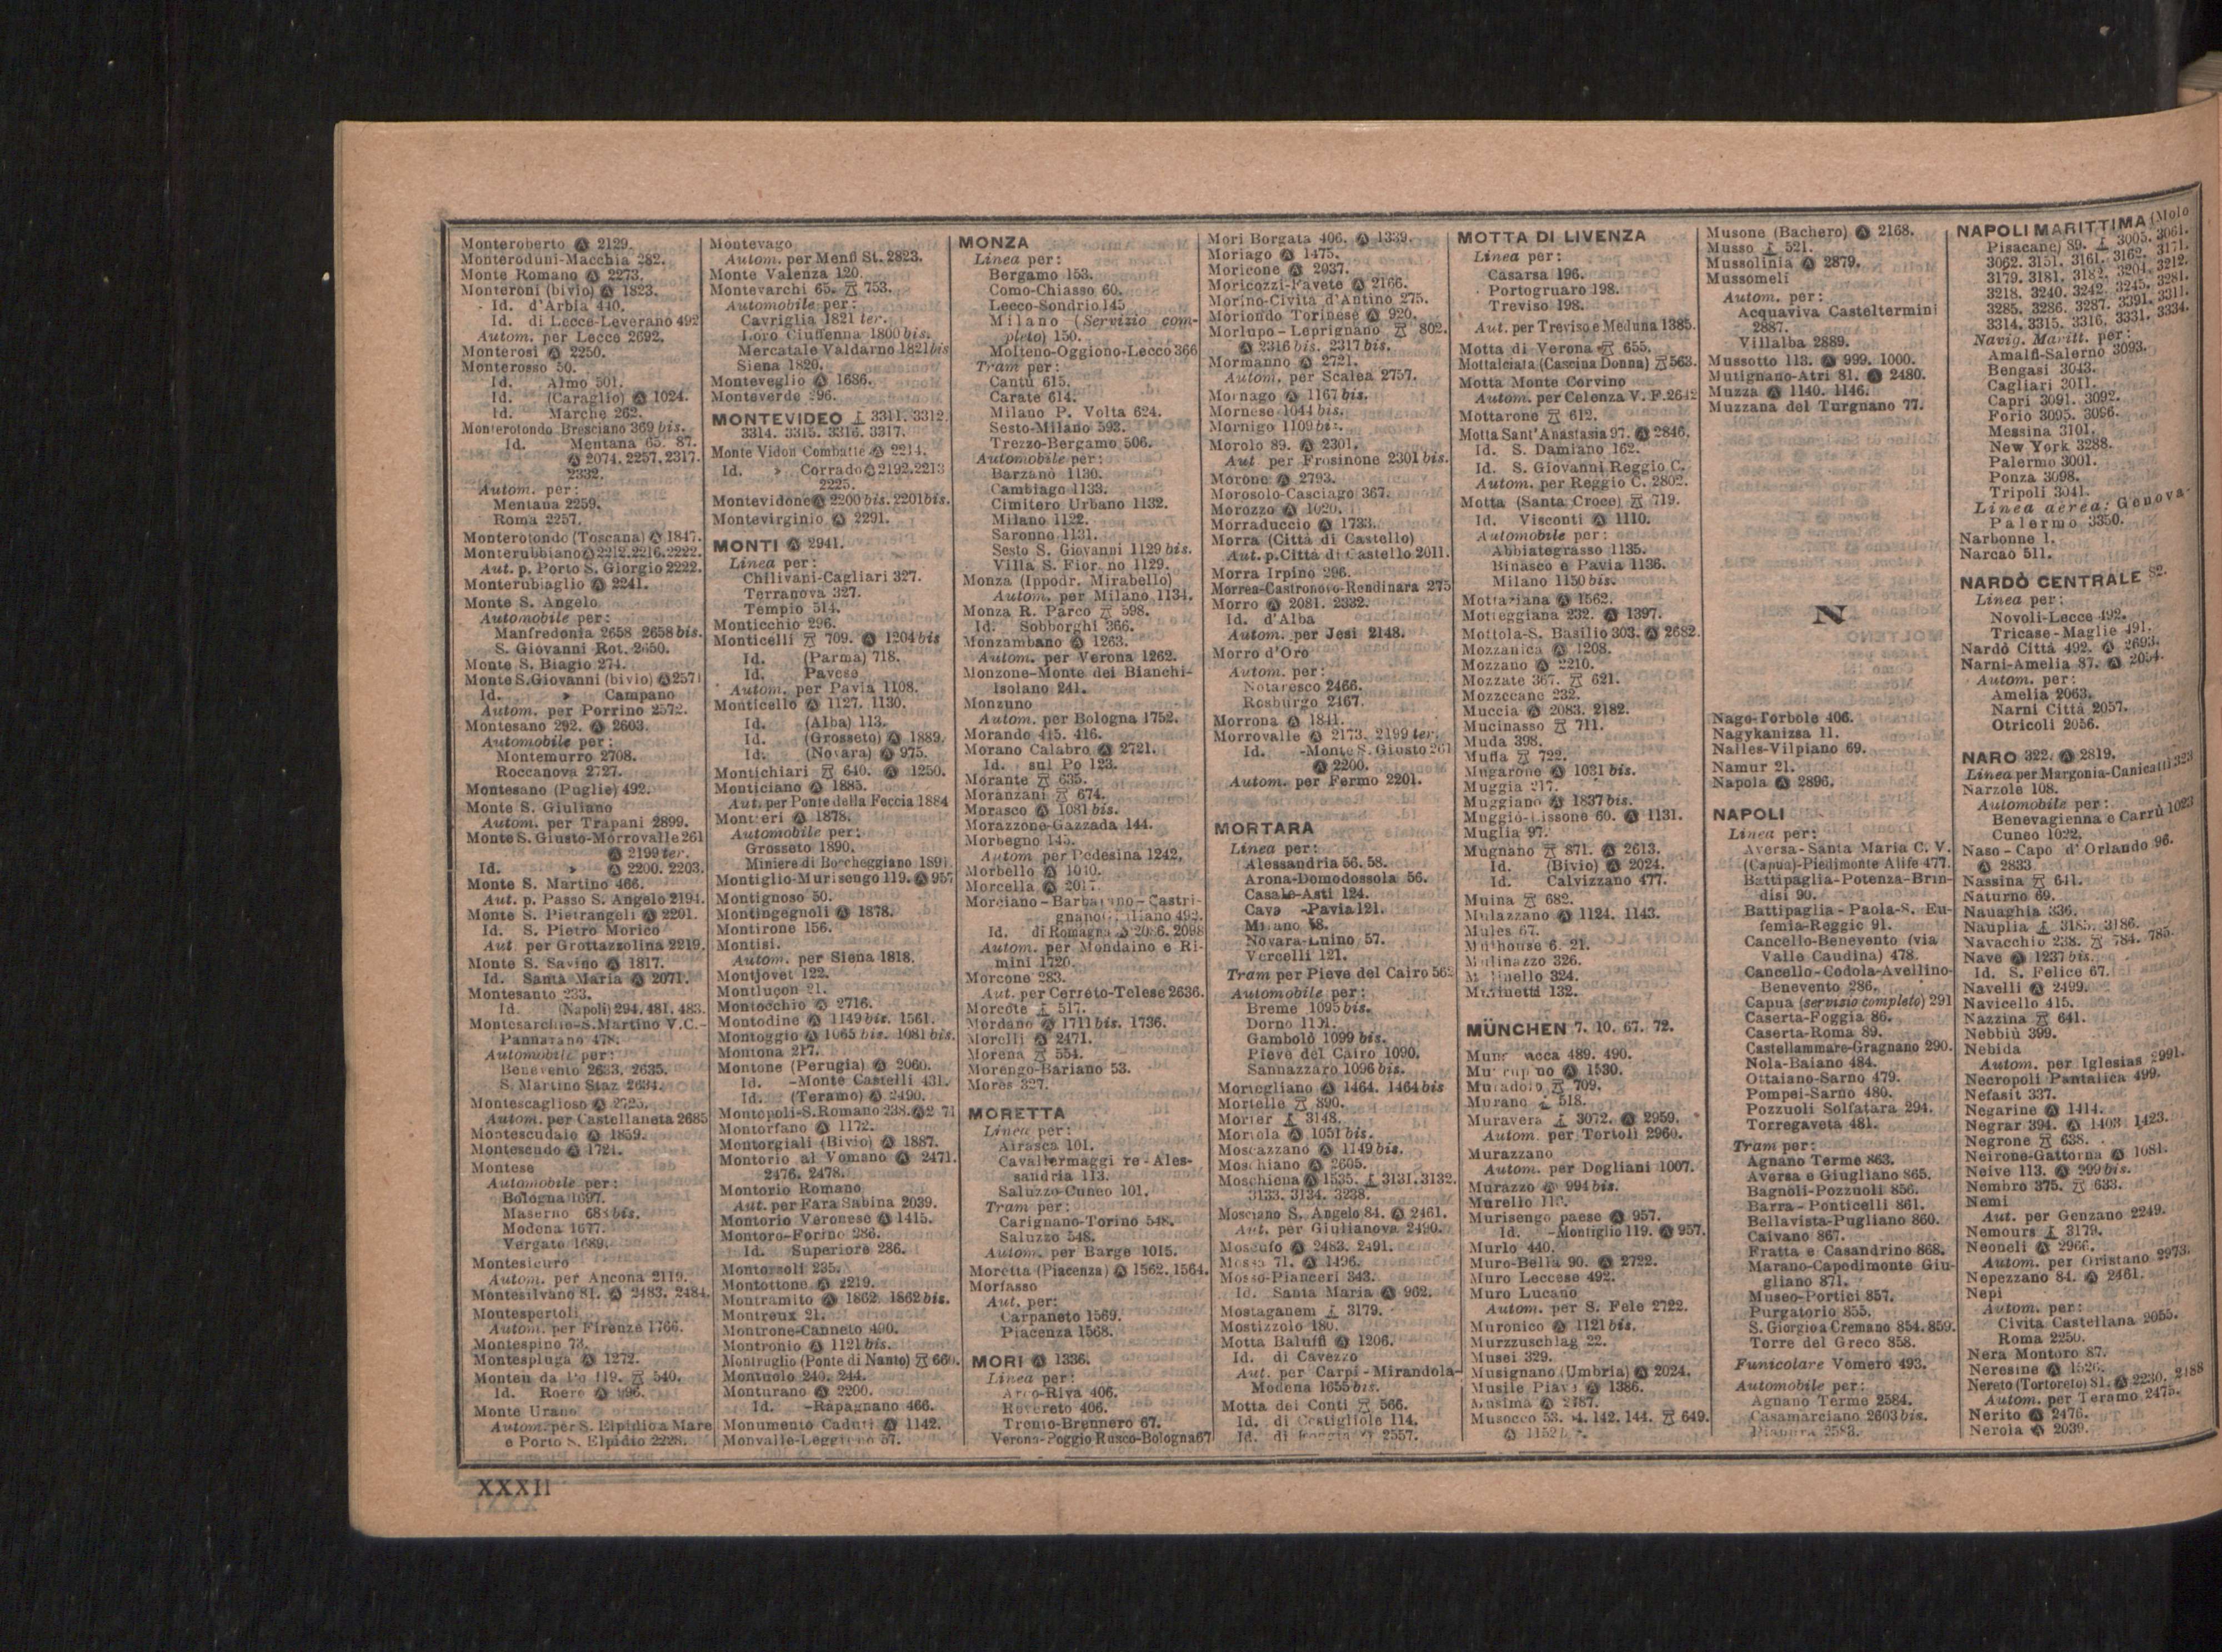 Monteroberto 2129.
Monteroduni-Macchia 282.
Monte Romano 2273.
Monteroni (bivio) 1823.
Id. d'Arbia 440.
Id. di Lecce-Leverano 492
Autom. per Lecce 2692.
Monterosi 2250.
Monterosso 50.
Id. Almo 501.
Id. (Caraglio) 1024.
Id. Marche 262.
Monterotondo Bresciano 369 bis.
Id. Mentana 65. 87.
2074. 2257. 2317.
2332.
Autom. per:
Mentana 2259.
Roma 2257.
Monterotondo (Toscana) 1847.
Monterubbiano 2212. 2216. 2222.
Aut. p. Porto S. Giorgio 2222.
Monterubiaglio 2241.
Monte S. Angelo
Automobile per:
Manfredonia 2658 2658 bis.
S. Giovanni Rot. 2650.
Monte S. Biagio 274.
Monte S. Giovanni (bivio) 2571
Id. » Campano
Autom. per Porrino 2572.
Montesano 292. 2603.
Automobile per:
Montemurro 2708.
Roccanova 2727.
Montesano (Puglie) 492.
Monte S. Giuliano
Autom. per Trapani 2899.
Monte S. Giusto-Morrovalle 261
2199 ter.
Id. » 2200. 2203.
Monte S. Martino 466.
Aut. p. Passo S. Angelo 2194.
Monte S. Pietrangeli 2201.
Id. S. Pietro Morico
Aut. per Grottazzolina 2219.
Monte S. Savino 1817.
Id. Santa Maria 2071.
Montesanto 233.
Id. (Napoli) 294. 481. 483.
Montesarchio-S. Martino V.C.-
Pannarano 478.
Automobile per:
Benevento 2633. 2635.
S. Martino Staz 2634.
Montescaglioso 2725.
Autom. per Castellaneta 2685
Montescudaio 1859.
Montescudo 1721.
Montese
Automobile per:
Bologna 1697.
Maserno bis.
Modena 1677.
Vergato 1689.
Montesicuro
Autom. per Ancona 2119.
Montesilvano 81. 2483. 2484.
Montespertoli
Autom. per Firenze 1766.
Montespino 73.
Montespluga 1272.
Monteu da Po 119. 540.
Id. Roero 996.
Monte Urano
Autom. per S. Elpidio a Mare
e Porto S. Elpidio 2228.
Montevago
Autom. per Menfi St. 2823.
Monte Valenza 120.
Montevarchi 65. 753.
Automobile per:
Cavriglia 1821 ter.
Loro Ciuffenna 1800 bis.
Mercatale Valdarno 1821 bis
Siena 1820.
Monteveglio 1686.
Monteverde 296.
MONTEVIDEO 3311. 3312.
3314. 3315. 3316. 3317.
Monte Vidon Combatte 2214.
Id. » Corrado 2192. 2213
2225.
Montevidone 2200 bis. 2201 bis.
Montevirginio 2291.
MONTI 2941.
Linea per:
Chilivani-Cagliari 327.
Terranova 327.
Tempio 514.
Monticchio 296.
Monticelli 709. 1204 bis
Id. (Parma) 718.
Id. Pavese
Autom. per Pavia 1108.
Monticello 1127. 1130.
Id. (Alba) 113.
Id. (Grosseto) 1889.
Id. (Novara) 975.
Montichiari 640. 1250.
Monticiano 1885.
Aut. per Ponte della Feccia 1884
Montieri 1878.
Automobile per:
Grosseto 1890.
Miniere di Boccheggiano 1891.
Montiglio-Murisengo 119. 957
Montignoso 50.
Montingegnoli 1878.
Montirone 156.
Montisi.
Autom. per Siena 1818.
Montjovet 122.
Montluçon 21.
Montocchio 2716.
Montodine 1149 bis. 1561.
Montoggio 1065 bis. 1081 bis.
Montona 217.
Montone (Perugia) 2060.
Id. -Monte Castelli 431.
Id. (Teramo) 2490.
Montopoli-S. Romano 238.
Montorfano 1172.
Montorgiali (Bivio) 1887.
Montorio al Vomano 2471.
2476. 2478.
Montorio Romano
Aut. per Fara Sabina 2039.
Montorio Veronese 1415.
Montoro-Forino 286.
Id. Superiore 286.
Montorsoli 235.
Montottone 2219.
Montramito 1862. 1862 bis.
Montreux 21.
Montrone-Canneto 490.
Montronio 1121 bis.
Montruglio (Ponte di Nanto) 660.
Montuolo 240. 244.
Monturano 2200.
Id. -Rapagnano 466.
Monumento Caduti 1142.
Monvalle-Leggiuno 57.
MONZA
Linea per:
Bergamo 153.
Como-Chiasso 60.
Lecco-Sondrio 145
Milano (Servizio com-
pleto) 150.
Molteno-Oggiono-Lecco 366
Tram per:
Cantù 615.
Carate 614.
Milano P. Volta 624.
Sesto-Milano 593.
Trezzo-Bergamo 506.
Automobile per:
Barzanò 1130.
Cambiago 1133.
Cimitero Urbano 1132.
Milano 1122.
Saronno 1131.
Sesto S. Giovanni 1129 bis.
Villa S. Fiorano 1129.
Monza (Ippodr. Mirabello)
Autom. per Milano 1134.
Monza R. Parco 598.
Id. Sobborghi 366.
Monzambano 1263.
Autom. per Verona 1262.
Monzone-Monte dei Bianchi-
Isolano 241.
Monzuno
Autom. per Bologna 1752.
Morando 415. 416.
Morano Calabro 2721.
Id. sul Po 123.
Morante 635.
Moranzani 674.
Morasco 1081 bis.
Morazzone-Gazzada 144.
Morbegno 145.
Autom per Pedesina 1242.
Morbello 1040.
Morcella 2017.
Morciano-Barbarano-Castri-
gnano Giuliano 492.
Id. di Romagna 2086. 2098
Autom. per Mondaino e Ri-
mini 1720.
Morcone 283.
Aut. per Cerreto-Telese 2636.
Morcote 517.
Mordano 1711 bis. 1736.
Morelli 2471.
Morena 554.
Morengo-Bariano 53.
Mores 327.
MORETTA
Linea per:
Airasca 101.
Cavallermaggiore-Ales-
sandria 113.
Saluzzo-Cuneo 101.
Tram per:
Carignano-Torino 548.
Saluzzo 548.
Autom. per Barge 1015.
Moretta (Piacenza) 1562. 1564.
Morfasso
Aut. per:
Carpaneto 1569.
Piacenza 1568.
MORI 1336.
Linea per:
Arco-Riva 406.
Rovereto 406.
Trento-Brennero 67.
Verona-Poggio Rusco-Bologna 67
Mori Borgata 406. 1339.
Moriago 1475.
Moricone 2037.
Moricozzi-Favete 2166.
Morino-Civita d'Antino 275.
Moriondo Torinese 920.
Morlupo-Leprignano 802.
2316 bis. 2317 bis.
Mormanno 2721.
Autom. per Scalea 2757.
Mornago 1167 bis.
Mornese 1044 bis.
Mornigo 1109 bis.
Morolo 89. 2301.
Aut per Frosinone 2301 bis.
Morone 2793.
Morosolo-Casciago 367.
Morozzo 1020.
Morraduccio 1733.
Morra (Città di Castello)
Aut. p. Città di Castello 2011.
Morra Irpino 296.
Morrea-Castronovo-Rendinara 275
Morro 2081. 2332.
Id. d'Alba
Autom. per Jesi 2148.
Morro d'Oro
Autom. per:
Notaresco 2466.
Rosburgo 2467.
Morrona 1841.
Morrovalle 2173. 2199 ter.
Id. -Monte S. Giusto 261
2200.
Autom. per Fermo 2201.
MORTARA
Linea per:
Alessandria 56. 58.
Arona-Domodossola 56.
Casale-Asti 124.
Cava -Pavia 121.
Milano 58.
Novara-Luino 57.
Vercelli 121.
Tram per Pieve del Cairo 562
Automobile per:
Breme 1095 bis.
Dorno 1101.
Gambolò 1099 bis.
Pieve del Cairo 1090.
Sannazzaro 1096 bis.
Mortegliano 1464. 1464 bis
Mortelle 890.
Morter 3148.
Mortola 1051 bis.
Moscazzano 1149 bis.
Moschiano 2605.
Moschiena 1535. 3131. 3132.
3133. 3134. 3238.
Mosciano S. Angelo 84. 2461.
Aut. per Giulianova 2490.
Moscufo 2483. 2491.
Mossa 71. 1496.
Mosso-Pianceri 343.
Id. Santa Maria 962.
Mostaganem 3179.
Mostizzolo 180.
Motta Balufi 1206.
Id. di Cavezzo
Aut. per Carpi-Mirandola-
Modena 1655 bis.
Motta dei Conti 566.
Id. di Costigliole 114.
Id. di Foggia 2557.
MOTTA DI LIVENZA
Linea per:
Casarsa 196.
Portogruaro 198.
Treviso 198.
Aut. per Treviso e Meduna 1385.
Motta di Verona 655.
Mottalciata (Cascina Donna) 563.
Motta Monte Corvino
Autom. per Celenza V. F. 2642
Mottarone 612.
Motta Sant'Anastasia 97. 2846.
Id. S. Damiano 162.
Id. S. Giovanni Reggio C.
Autom. per Reggio C. 2802.
Motta (Santa Croce) 719.
Id. Visconti 1110.
Automobile per:
Abbiategrasso 1135.
Binasco e Pavia 1136.
Milano 1150 bis.
Mottaziana 1562.
Motteggiana 232. 1397.
Mottola-S. Basilio 303. 2682.
Mozzanica 1208.
Mozzano 2210.
Mozzate 367. 621.
Mozzecane 232.
Muccia 2083. 2182.
Mucinasso 711.
Muda 398.
Muffa 722.
Mugarone 1031 bis.
Muggia 217.
Muggiano 1837 bis.
Muggiò-Lissone 60. 1131.
Muglia 97.
Mugnano 871. 2613.
Id. (Bivio) 2024.
Id. Calvizzano 477.
Muina 682.
Mulazzano 1124. 1143.
Mules 67.
Mulhouse 6. 21.
Mulinazzo 326.
Mulinello 324.
Mulinetti 132.
MÜNCHEN 7. 10. 67. 72.
489. 490.
1530.
Muradolo 709.
Murano 518.
Muravera 3072. 2959.
Autom. per Tortolì 2960.
Murazzano
Autom. per Dogliani 1007.
Murazzo 994 bis.
Murello 113.
Murisengo paese 957.
Id. -Montiglio 119. 957.
Murlo 440.
Muro-Bella 90. 2722.
Muro Leccese 492.
Muro Lucano
Autom. per S. Fele 2722.
Muronico 1121 bis.
Murzzuschlag 22.
Musei 329.
Musignano (Umbria) 2024.
Musile Piave 1386.
Musima 2487.
Musocco 53. 54. 142. 144. 649.
Musone (Bachero) 2168.
Musso 521.
Mussolinia 2879.
Mussomeli
Autom. per:
Acquaviva Casteltermini
2887.
Villalba 2889.
Mussotto 113. 999. 1000.
Mutignano-Atri 81. 2480.
Muzza 1140. 1146.
Muzzana del Turgnano 77.
N
Nago-Torbole 406.
Nagykanizsa 11.
Nalles-Vilpiano 69.
Namur 21.
Napola 2896.
NAPOLI
Linea per:
Aversa-Santa Maria C. V.
(Capua)-Piedimonte Alife 477.
Battipaglia-Potenza-Brin-
disi 90.
Battipaglia-Paola-S. Eu-
femia-Reggio 91.
Cancello-Benevento (via
Valle Caudina) 478.
Cancello-Codola-Avellino-
Benevento 286.
Capua (servizio completo) 291
Caserta-Foggia 86.
Caserta-Roma 89.
Castellammare-Gragnano 290.
Nola-Baiano 484.
Ottaiano-Sarno 479.
Pompei-Sarno 480.
Pozzuoli Solfatara 294.
Torregaveta 481.
Tram per:
Agnano Terme 863.
Aversa e Giugliano 865.
Bagnoli-Pozzuoli 856.
Barra-Ponticelli 861.
Bellavista-Pugliano 860.
Caivano 867.
Fratta e Casandrino 868.
Marano-Capodimonte Giu-
gliano 871.
Museo-Portici 857.
Purgatorio 855.
S. Giorgio a Cremano 854. 859.
Torre del Greco 858.
Funicolare Vomero 493.
Automobile per:
Agnano Terme 2584.
Casamarciano 2603 bis.
Pianura 2583.
NAPOLI MARITTIMA (Molo
Pisacane) 89. 3005. 3061.
3062. 3151. 3161. 3162. 3171.
3179. 3181. 3182. 3204. 3212.
3218. 3240. 3242. 3245. 3281.
3285. 3286. 3287. 3391. 3311.
3314. 3315. 3316. 3331. 3334.
Navig. Maritt. per:
Amalfi-Salerno 3093.
Bengasi 3043.
Cagliari 3011.
Capri 3091. 3092.
Forio 3095. 3096.
Messina 3101.
New York 3288.
Palermo 3001.
Ponza 3098.
Tripoli 3041.
Linea aerea: Genova-
Palermo 3350.
Narbonne 1.
Narcao 511.
NARDÒ CENTRALE 82.
Linea per:
Novoli-Lecce 492.
Tricase-Maglie 491.
Nardò Città 492. 2693.
Narni-Amelia 87. 2054.
Autom. per:
Amelia 2063.
Narni Città 2057.
Otricoli 2056.
NARO 322. 2819.
Linea per Margonia-Canicattì 323
Narzole 108.
Automobile per:
Benevagienna e Carrù 1023
Cuneo 1022.
Naso-Capo d'Orlando 96.
2833
Nassina 641.
Naturno 69.
Nauaghia 336.
Nauplia 3185. 3186.
Navacchio 238. 784. 785.
Nave 1237 bis.
Id. S. Felice 67.
Navelli 2499.
Navicello 415.
Nazzina 641.
Nebbiù 399.
Nebida
Autom. per Iglesias 2991.
Necropoli Pantalica 499.
Nefasit 337.
Negarine 1414.
Negrar 394. 1403 1423.
Negrone 638.
Neirone-Gattorna 1081.
Neive 113. 999 bis.
Nembro 375. 633.
Nemi
Aut. per Genzano 2249.
Nemours 3179.
Neoneli 2966.
Autom. per Oristano 2973.
Nepezzano 84. 2461.
Nepi
Autom. per:
Civita Castellana 2055.
Roma 2250.
Nera Montoro 87.
Neresine 1526.
Nereto (Tortoreto) 81. 2230. 2188
Autom. per Teramo 2475.
Nerito 2476.
Nerola 2039.
XXXII